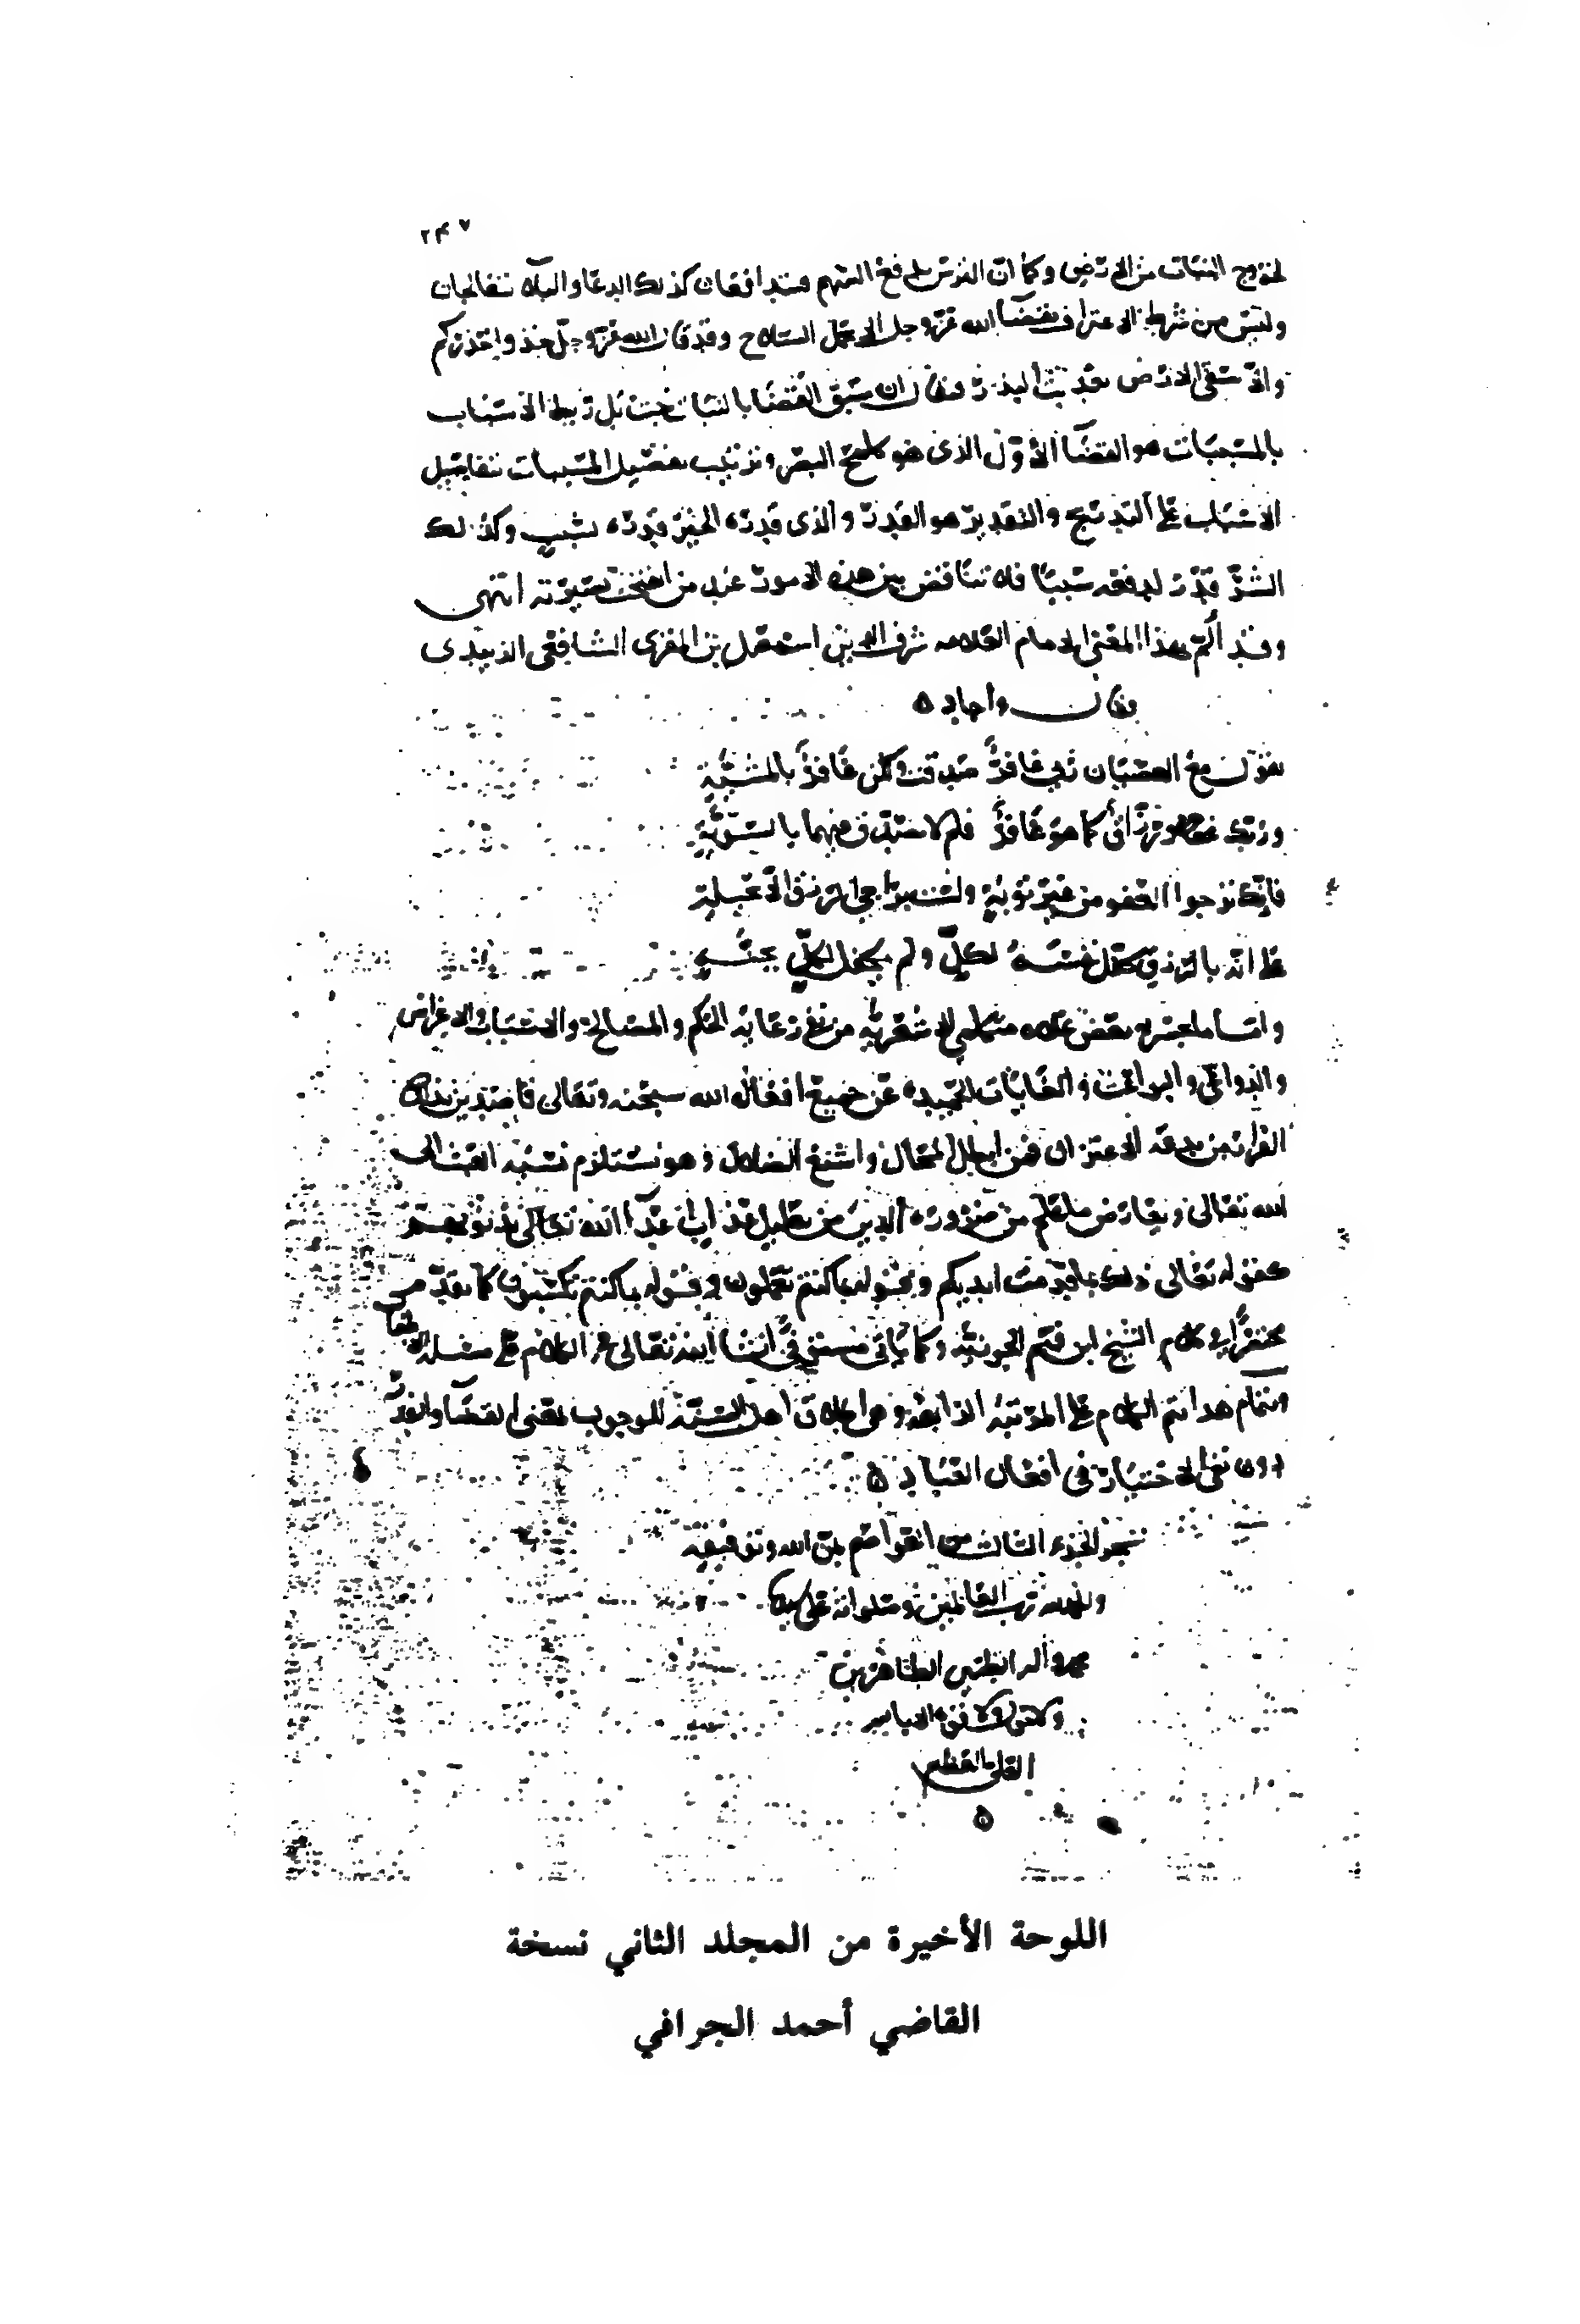 ٢٤٧
لخروج النبات من الارض وكما ان الترس يدفع السهم فيتدافعان كذلك الدعا والبلاء يتعالجان
وليس من شرط الاعتراف بقضا الله عز وجل ان لا يحمل السلاح وقد قال الله عز وجل خذوا حذركم
وان لا يسقى الارض بعد بث البذر فيقال ان سبق القضا بالنبات نبت بل ربط الاسباب
بالمسببات هو القضا الأول الذى هو كلمح البصر وترتيب تفصيل المسببات بتفاصيل
الاسباب على التدريج والتقدير هو القدر والذى قدر الخير قدره بسبب وكذلك
الشر قدر لدفعه سببا فلا تناقض بين هذه الامور عند من انفتحت بصيرته انتهى
وقد ألم بهذا المعنى الامام العلامه شرف الدين اسمعيل بن المقرى الشافعى الزبيدى
فقال وأجاد ٥
تقول مع العصيان ربي غافر صدقت ولكن غافر بالمشيّة
وربك رزاق كما هو غافر فلم لا تصدق فيهما بالسّويّة
فإنك ترجوا العفو من غير توبة ولست براجي الرزق الا بحيلة
على انه بالرزق كفل نفسه لكلّ ولم يكفل لكلّ بجنّة
واما بعض متكلمي الاشعريه من نفي رعاية الحكم والمصالح والاسباب والاغراض
والدواعي والبواعث والغايات الحميده عن جميع افعال الله سبحنه وتعالى قاصدين بذلك
الفرار من بدعة الاعتزال فمن ابطل المحال واشنع الضلال وهو يستلزم نسبة العبث الى
الله تعالى ويعارض ما علم من ضرورة الدين من تعليل عذاب اعدآ الله تعالى بذنوبهم
كقوله تعالى ذلك بما قدمت ايديكم وبقوله بما كنتم تعملون وبقوله بما كنتم تكسبون كما تقدم
في كلام الشيخ ابن قيم الجوزيه وكما ياتى مستوفى ان شا الله تعالى في الكلام على مسئلة
وبتمام هذا تم الكلام على المرتبة الرابعه وهى اطلاق اهل السنة للوجوب بمعنى القضا والقدر
دون نفى الاختيار فى افعال العباد ٥
نجز الجزء الثالث من العواصم بمن الله وتوفيقه
والحمد لله رب العالمين وصلواته على سيدنا
محمد وآله الطيبين الطاهرين
ولا حول ولا قوة الا بالله
العلي العظيم
٥
اللوحة الأخيرة من المجلد الثاني نسخة
القاضي أحمد الجرافي